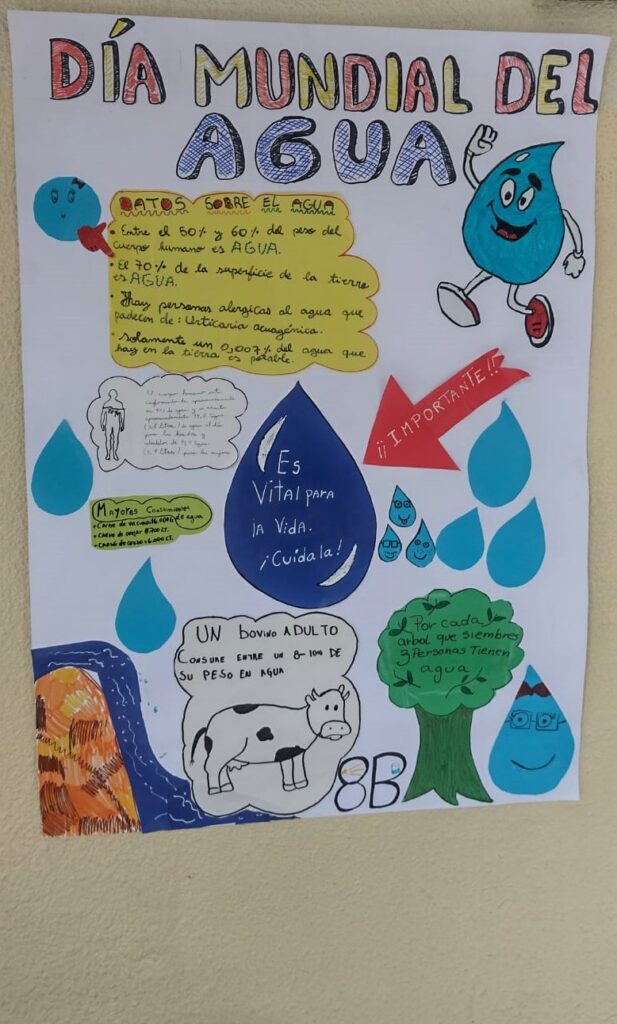 DÍA MUNDIAL DEL
AGUA
DATOS SOBRE EL AGUA
• Entre el 50% y 60% del peso del
cuerpo humano es AGUA.
• El 70% de la superficie de la tierra
es AGUA.
• Hay personas alergicas al agua que
padecen de: Urticaria acuagénica.
• Solamente un 0,007% del agua que
hay en la tierra es potable.
¡¡IMPORTANTE!!
El cuerpo humano está
conformado de aproximadamente
agua
para los hombres y
para las mujeres
Es
Vital para
la Vida.
¡Cuídala!
MAYORES
de agua
• CARNE DE
• CARNE DE
• CARNE DE CERDO
UN bovino ADULTO
CONSUME ENTRE UN 8-10% DE
SU PESO EN AGUA
Por cada
arbol que siembres
3 Personas Tienen
agua
8B